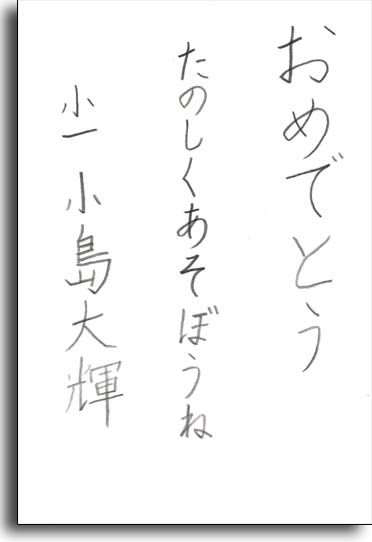 おめでとう
たのしくあそぼうね
小一 小島大輝